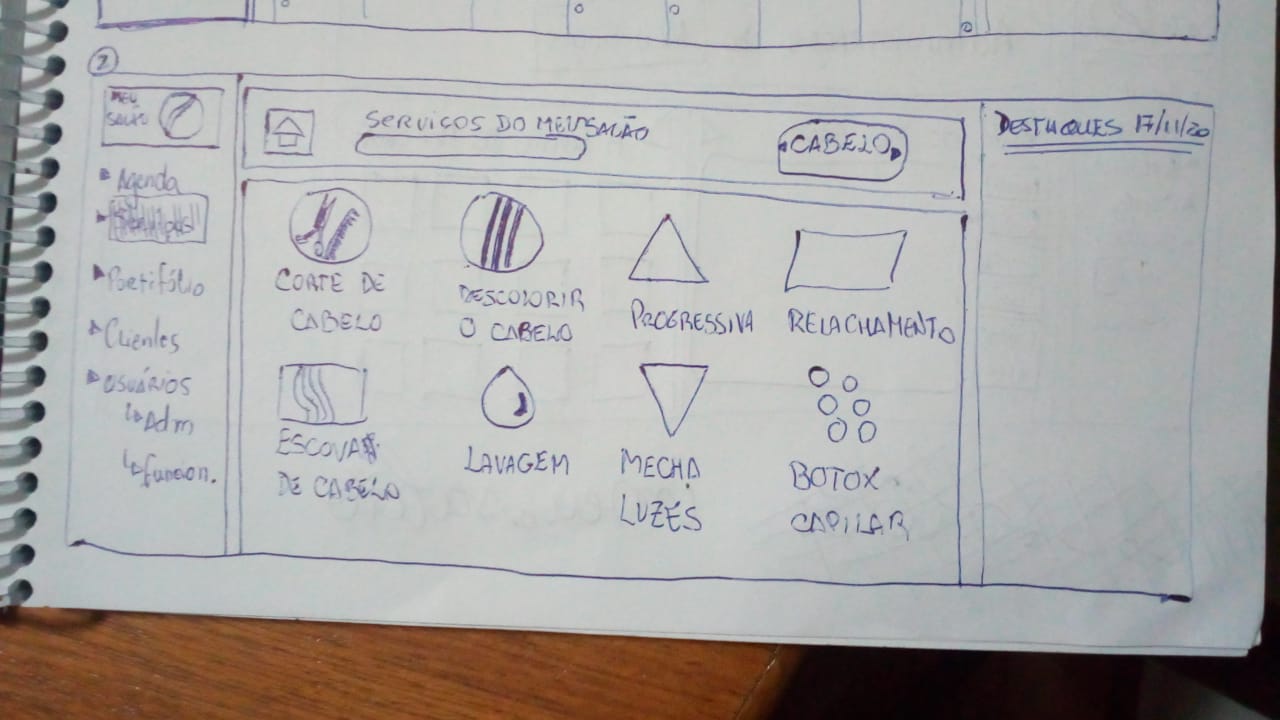 2
MEU
SALÃO
Agenda
Portifólio
Clientes
USUÁRIOS
Adm
funcion.
SERVIÇOS DO MEUSALÃO
CABELO
CORTE DE
CABELO
DESCOLORIR
O CABELO
PROGRESSIVA
RELACHAMENTO
ESCOVAS
DE CABELO
LAVAGEM
MECHA
LUZES
BOTOX
CAPILAR
DESTAQUES 17/11/20